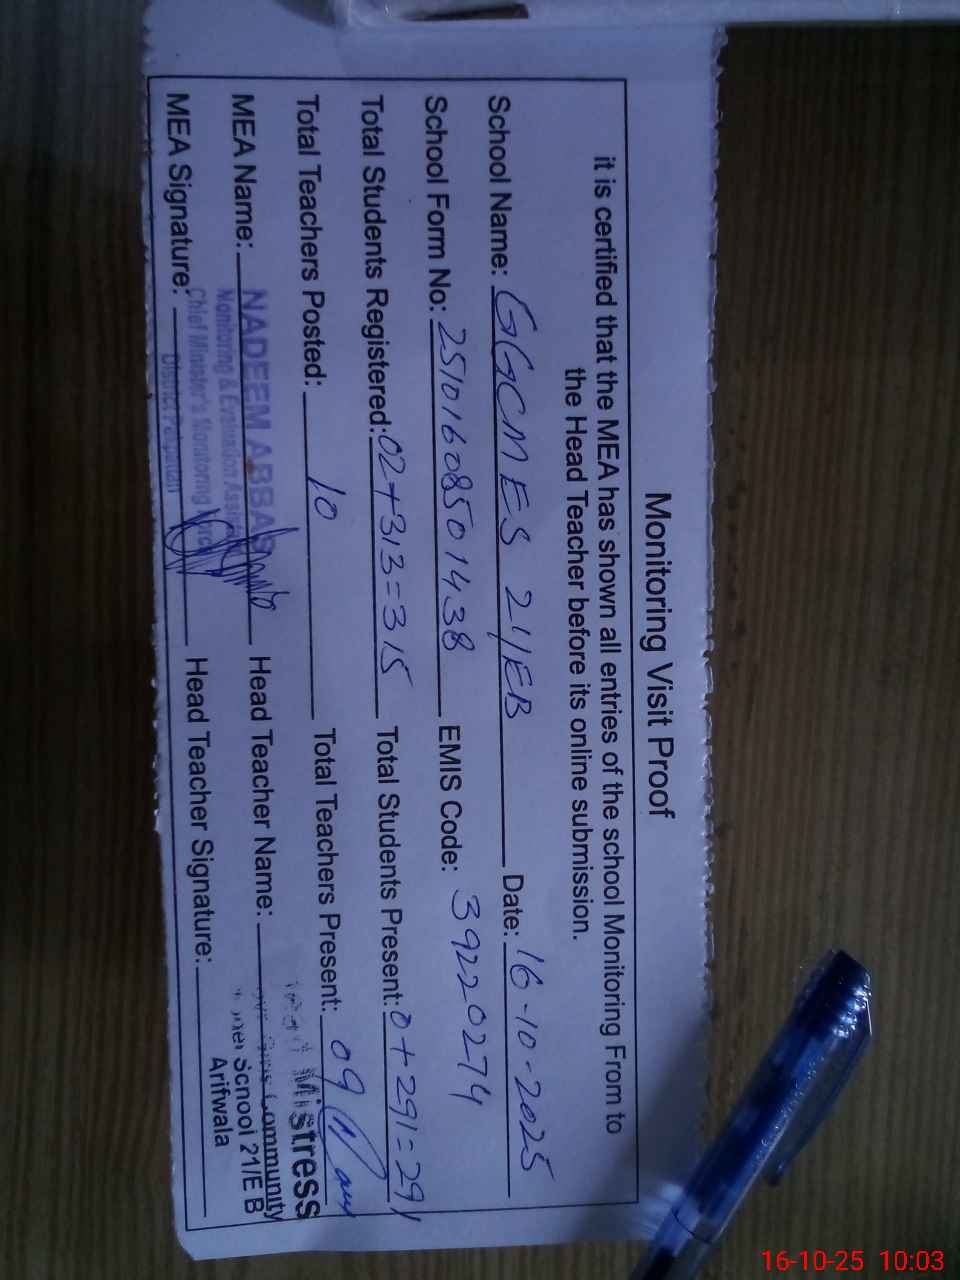 Monitoring Visit Proof
it is certified that the MEA has shown all entries of the school Monitoring From to
the Head Teacher before its online submission.
School Name: GGCMES 21/EB Date: 16-10-2025
School Form No: 25101608501438 EMIS Code: 39220274
Total Students Registered: 02+313=315 Total Students Present: 0+291=291
Total Teachers Posted: 10 Total Teachers Present: 09
MEA Name: NADEEM ABBAS Head Teacher Name:
Monitoring & Evaluation
Chief Minister's Monitoring
District Pakpattan
MEA Signature: Head Teacher Signature:
Mistress
Community
School 21/E B
Arifwala
16-10-25 10:03